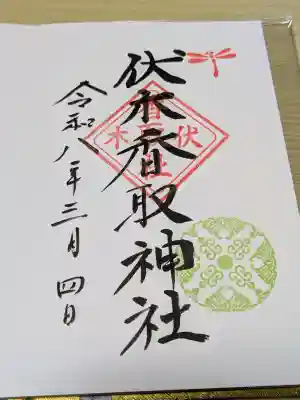 伏木香取神社
令和八年三月四日
伏木
香取
社